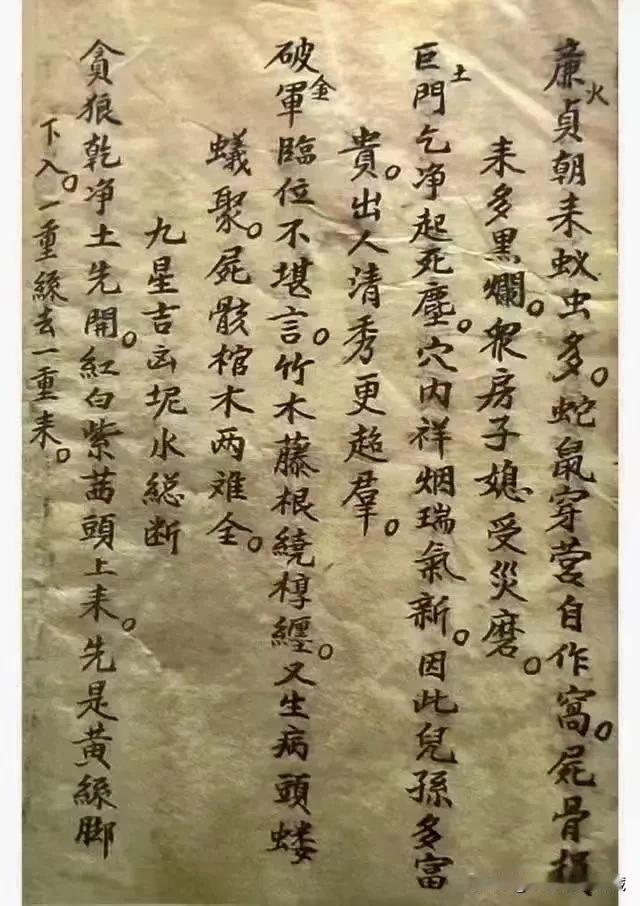 廉貞朝来蚁虫多。蛇鼠穿营自作窩。屍骨損
火
来多黒爛。衆房子媳受災磨。
巨門乞净起死塵。穴内祥烟瑞氣新。因此兒孫多富
土
貴。出人清秀更超羣。
破軍臨位不堪言。竹木藤根繞椁纒。又生病頭蝼
金
蟻聚。屍骸棺木两难全。
九星吉凶坭水総断
貪狼乾净土先開。紅白紫茜頭上来。先是黄絲脚
下入。一重絲去一重来。